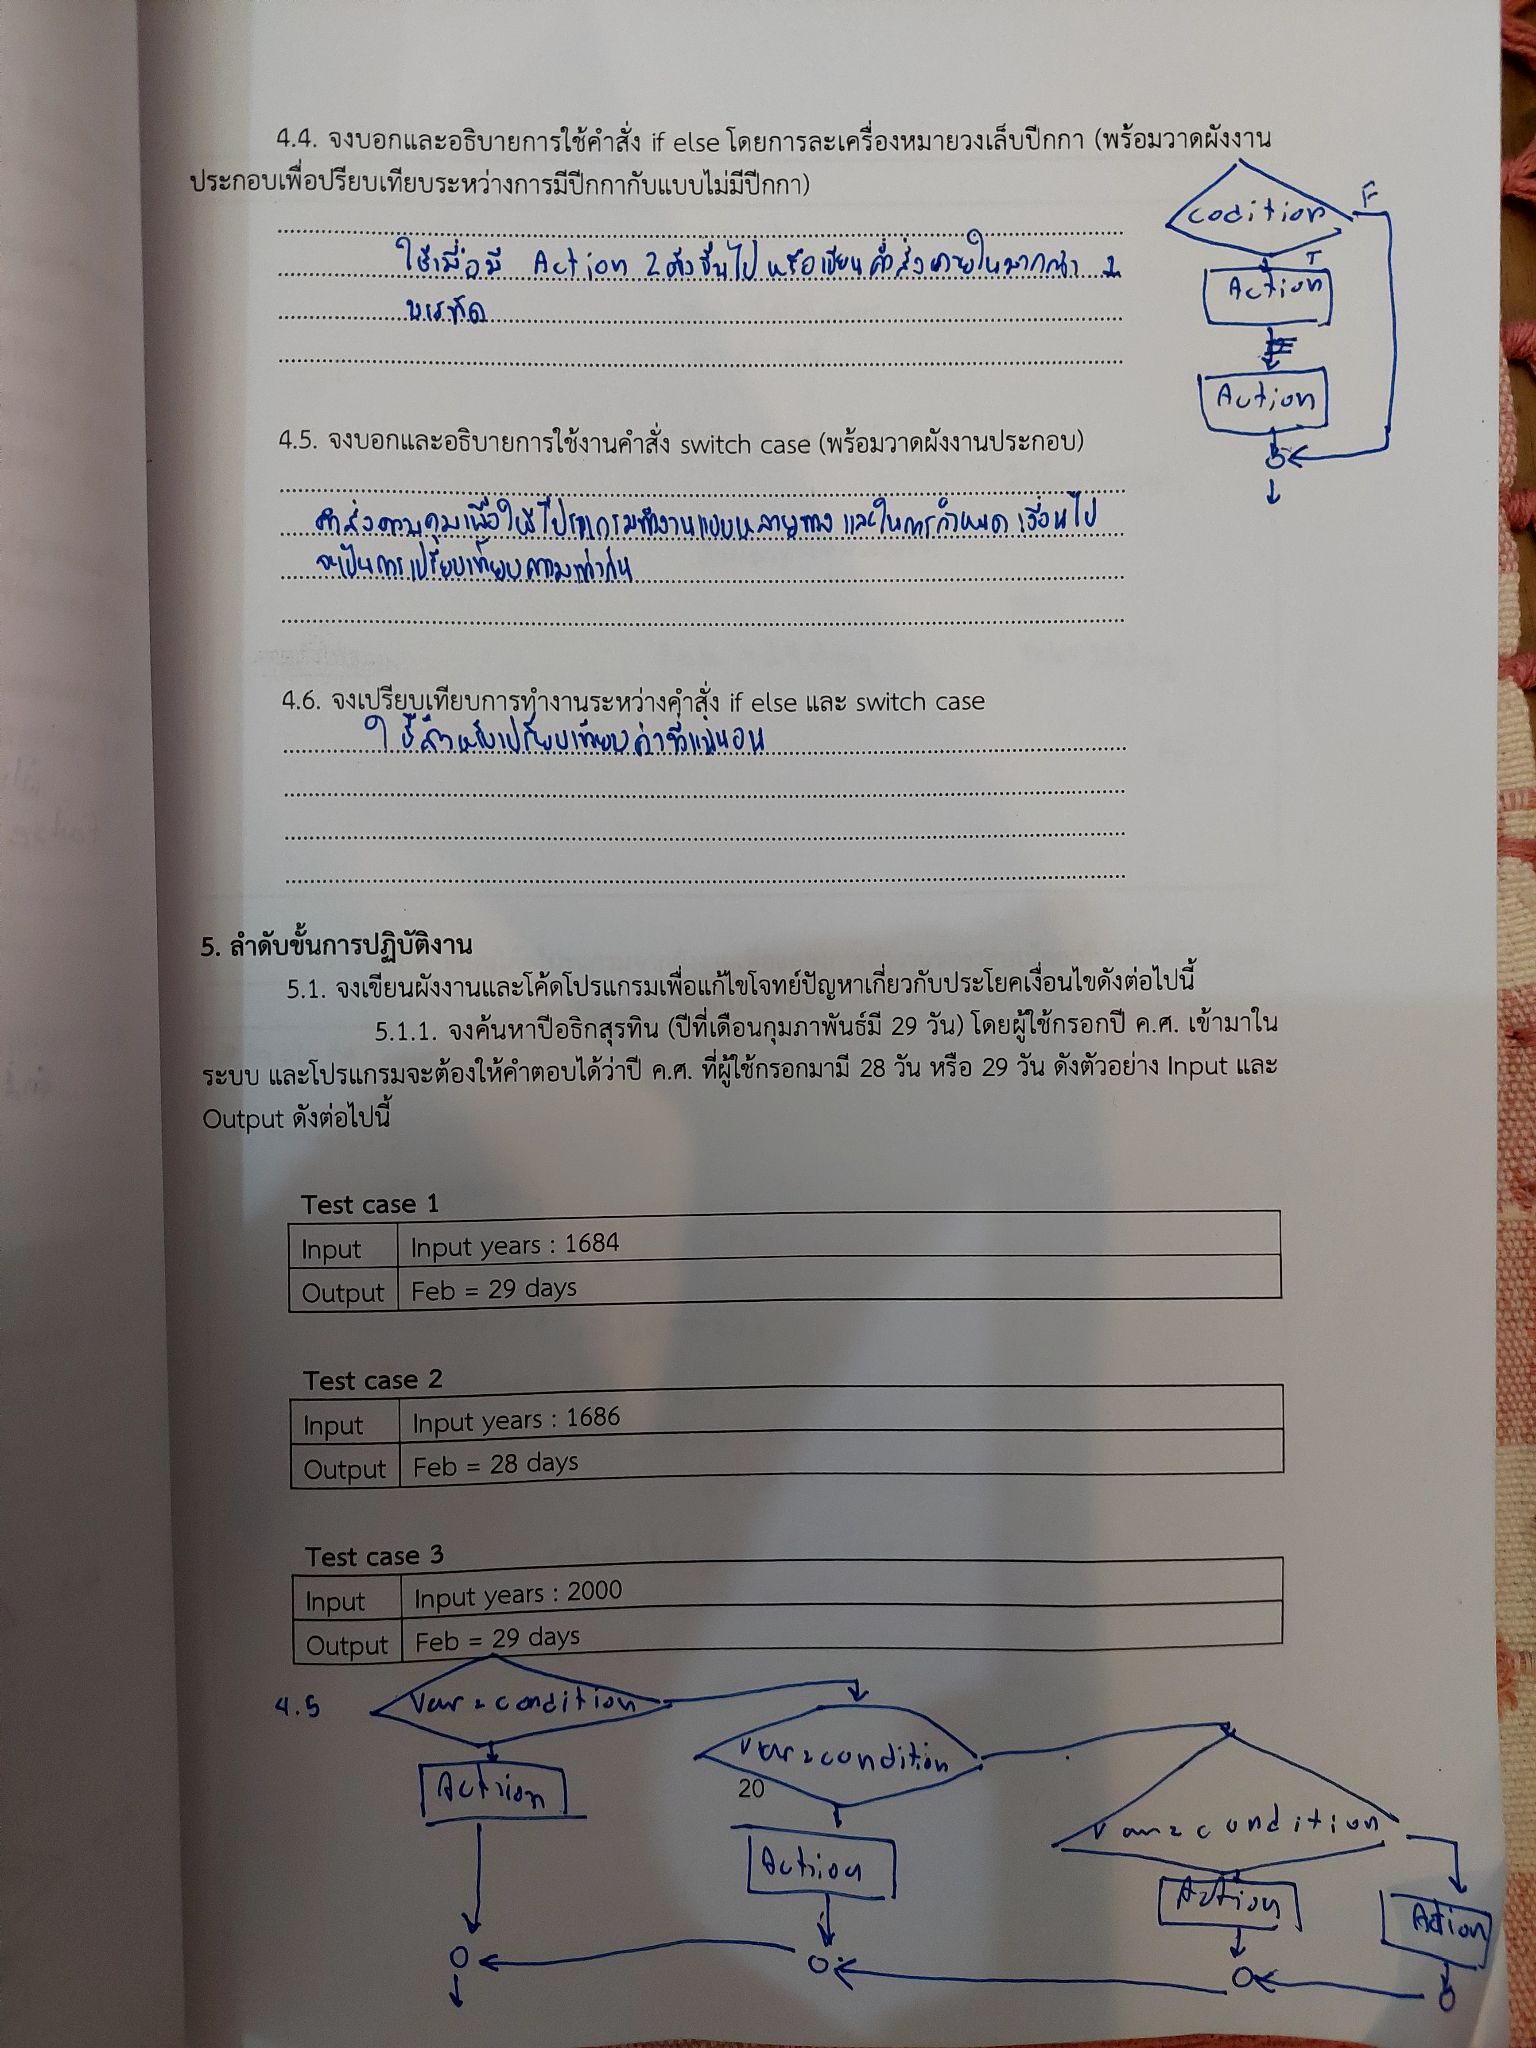 4.4. จงบอกและอธิบายการใช้คำสั่ง if else โดยการละเครื่องหมายวงเล็บปีกกา (พร้อมวาดผังงาน
ประกอบเพื่อปรียบเทียบระหว่างการมีปีกกากับแบบไม่มีปีกกา)
ใช้เมื่อมี Action 2 ตัวขึ้นไป หรือเขียนคำสั่งภายในมากกว่า 1
บรรทัด
codition
F
T
Action
Action
4.5. จงบอกและอธิบายการใช้งานคำสั่ง switch case (พร้อมวาดผังงานประกอบ)
คำสั่งควบคุมเพื่อให้โปรแกรมทำงานแบบหลายทาง และในการกำหนดเงื่อนไข
จะเป็นการเปรียบเทียบความเท่ากัน
4.6. จงเปรียบเทียบการทำงานระหว่างคำสั่ง if else และ switch case
ใช้สำหรับเปรียบเทียบค่าที่แน่นอน
5. ลำดับขั้นการปฏิบัติงาน
5.1. จงเขียนผังงานและโค้ดโปรแกรมเพื่อแก้ไขโจทย์ปัญหาเกี่ยวกับประโยคเงื่อนไขดังต่อไปนี้
5.1.1. จงค้นหาปีอธิกสุรทิน (ปีที่เดือนกุมภาพันธ์มี 29 วัน) โดยผู้ใช้กรอกปี ค.ศ. เข้ามาใน
ระบบ และโปรแกรมจะต้องให้คำตอบได้ว่าปี ค.ศ. ที่ผู้ใช้กรอกมามี 28 วัน หรือ 29 วัน ดังตัวอย่าง Input และ
Output ดังต่อไปนี้
Test case 1
Input Input years : 1684
Output Feb = 29 days
Test case 2
Input Input years : 1686
Output Feb = 28 days
Test case 3
Input Input years : 2000
Output Feb = 29 days
4.5 var = condition
var = condition
20
var = condition
Action
Action
Action
Action